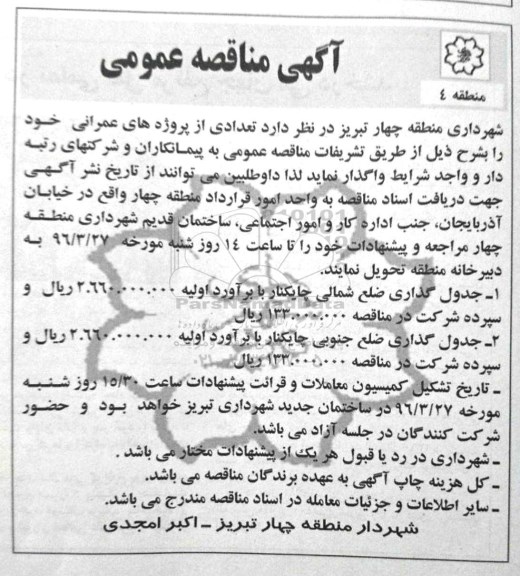 آگهی مناقصه عمومی
منطقه ٤
شهرداری منطقه چهار تبریز در نظر دارد تعدادی از پروژه های عمرانی خود
را بشرح ذیل از طریق تشریفات مناقصه عمومی به پیمانکاران و شرکتهای رتبه
دار و واجد شرایط واگذار نماید لذا داوطلبین می توانند از تاریخ نشر آگهی
جهت دریافت اسناد مناقصه به واحد امور قرارداد منطقه چهار واقع در خیابان
آذربایجان، جنب اداره کار و امور اجتماعی، ساختمان قدیم شهرداری منطقه
چهار مراجعه و پیشنهادات خود را تا ساعت ۱٤ روز شنبه مورخه ۹٦/۳/۲۷ به
دبیرخانه منطقه تحویل نمایند.
۱ـ جدول گذاری ضلع شمالی چایکنار با برآورد اولیه ۲.٦٦۰.۰۰۰.۰۰۰ ریال و
سپرده شرکت در مناقصه ۱۳۳.۰۰۰.۰۰۰ ریال
۲ـ جدول گذاری ضلع جنوبی چایکنار با برآورد اولیه ۲.٦٦۰.۰۰۰.۰۰۰ ریال و
سپرده شرکت در مناقصه ۱۳۳.۰۰۰.۰۰۰ ریال
ـ تاریخ تشکیل کمیسیون معاملات و قرائت پیشنهادات ساعت ۱٥/۳۰ روز شنبه
مورخه ۹٦/۳/۲۷ در ساختمان جدید شهرداری تبریز خواهد بود و حضور
شرکت کنندگان در جلسه آزاد می باشد.
ـ شهرداری در رد یا قبول هر یک از پیشنهادات مختار می باشد .
ـ کل هزینه چاپ آگهی به عهده برندگان مناقصه می باشد.
ـ سایر اطلاعات و جزئیات معامله در اسناد مناقصه مندرج می باشد.
شهردار منطقه چهار تبریز ـ اکبر امجدی